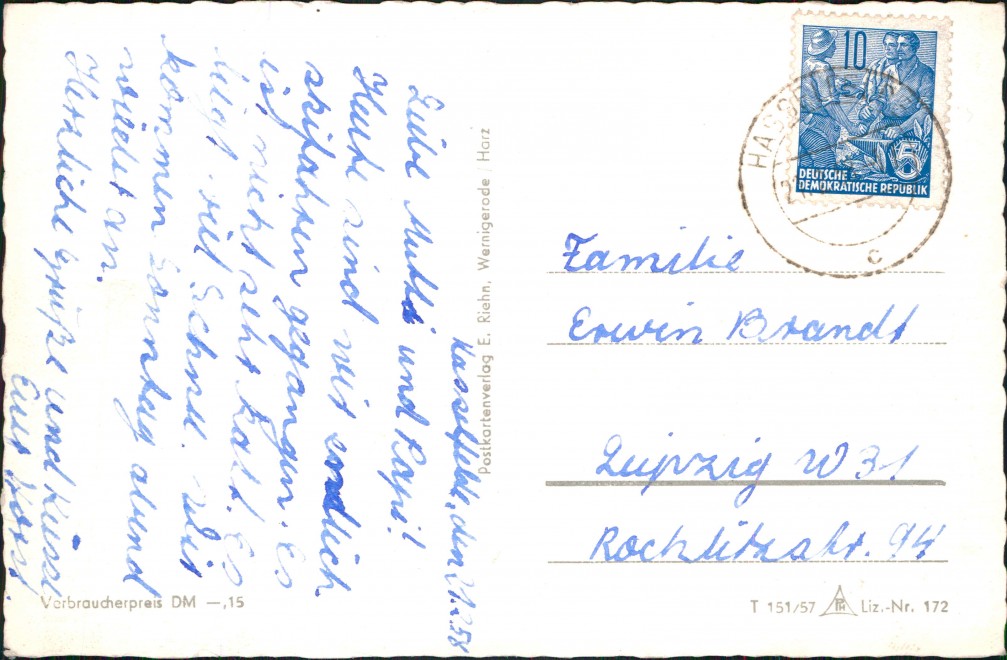 Hasselfelde, den 21.2.58
Liebe Mutti und Papi!
Heute sind wir endlich
skifahren gegangen. Es
ist nicht sehr kalt. Es
liegt viel Schnee. Wir
kommen Sonntag abend
wieder an.
Herzliche Grüße und Küsse
Euer Horst
Postkartenverlag E. Riehn, Wernigerode / Harz
10
DEUTSCHE
DEMOKRATISCHE REPUBLIK
5
c
Familie
Erwin Brandt
Leipzig W 31
Rochlitzstr. 94
Verbraucherpreis DM —,15
T 151/57 Liz.-Nr. 172